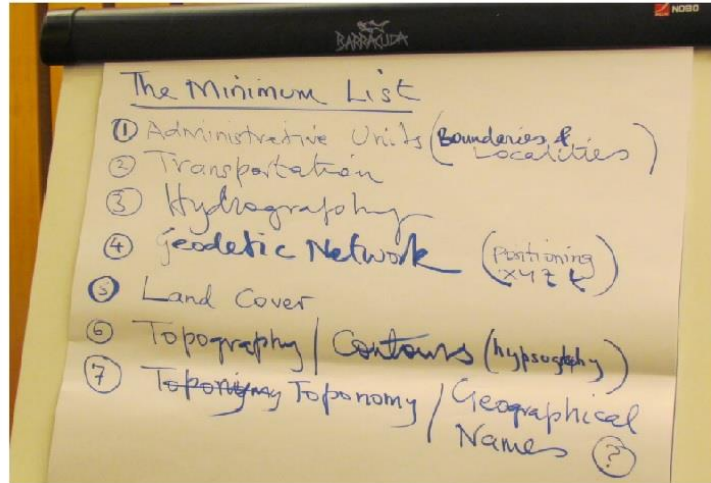 NOBO
BARRACUDA
The Minimum List
① Administrative Units (Boundaries & Localities)
② Transportation
③ Hydrography
④ Geodetic Network (Positioning XYZ t)
⑤ Land Cover
⑥ Topography / Contours (hypsography)
⑦ Toponymy Toponomy / Geographical
Names ?